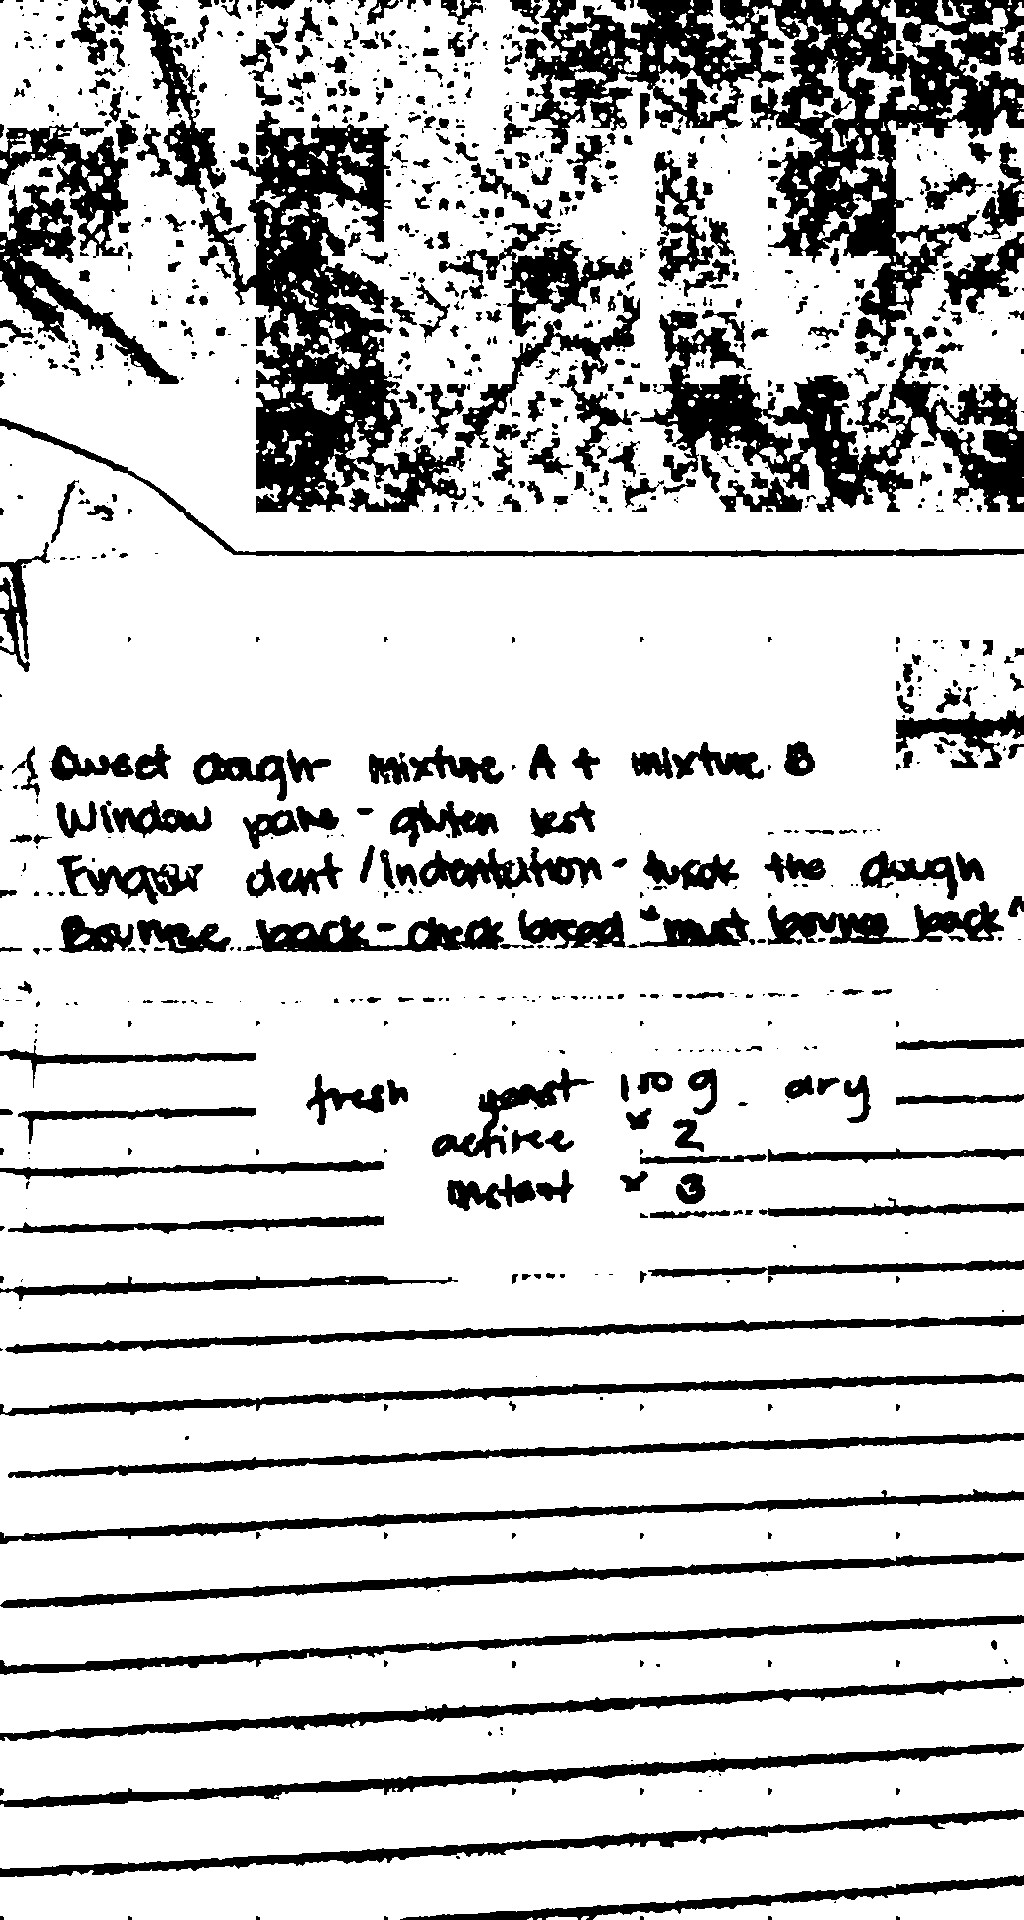 Sweet dough- mixture A + mixture B
Window pane - gluten test
Finger dent / indentation - the dough
Bounce back - check bread "must bounce back"
fresh yeast 100 g dry
active × 2
instant × 3